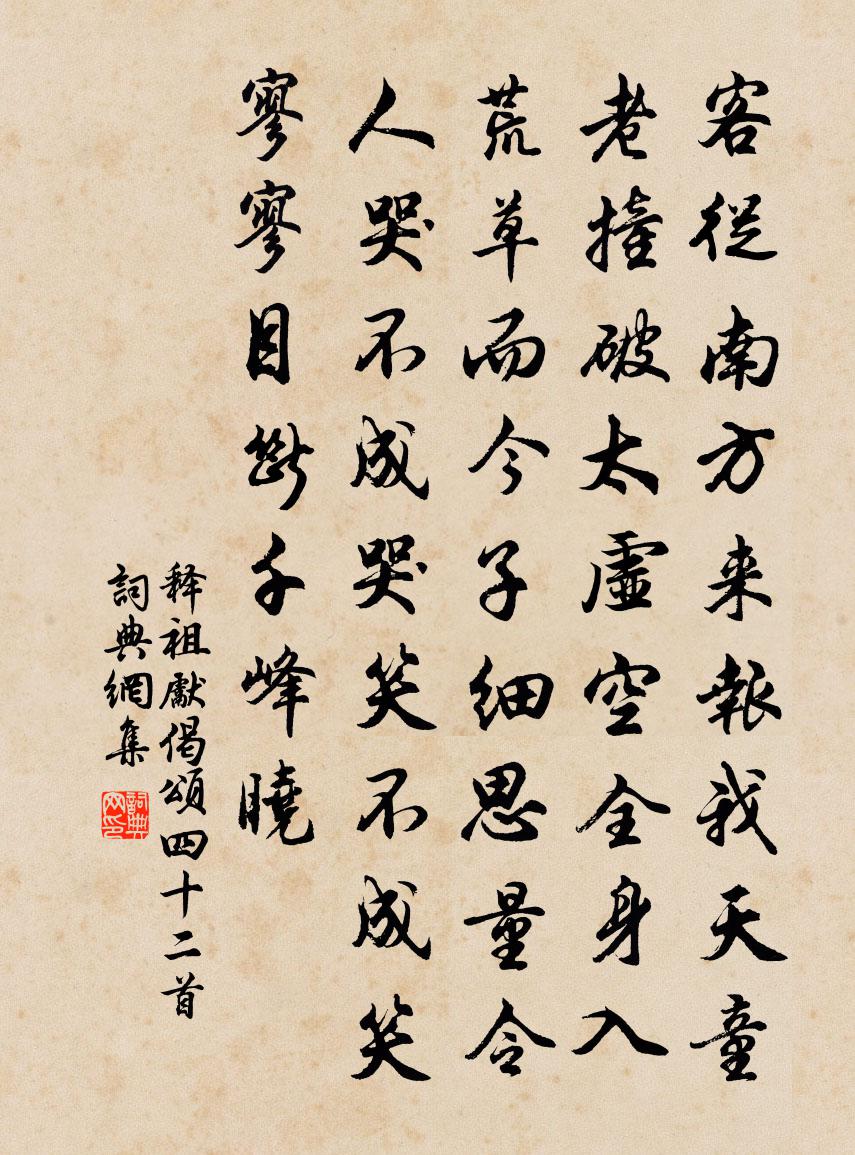 客從南方来報我天童
老撞破太虛空全身入
荒草而今子細思量令
人哭不成哭笑不成笑
寥寥目斷千峰曉
释祖獻偈頌四十二首
詞典網集
詞典网印